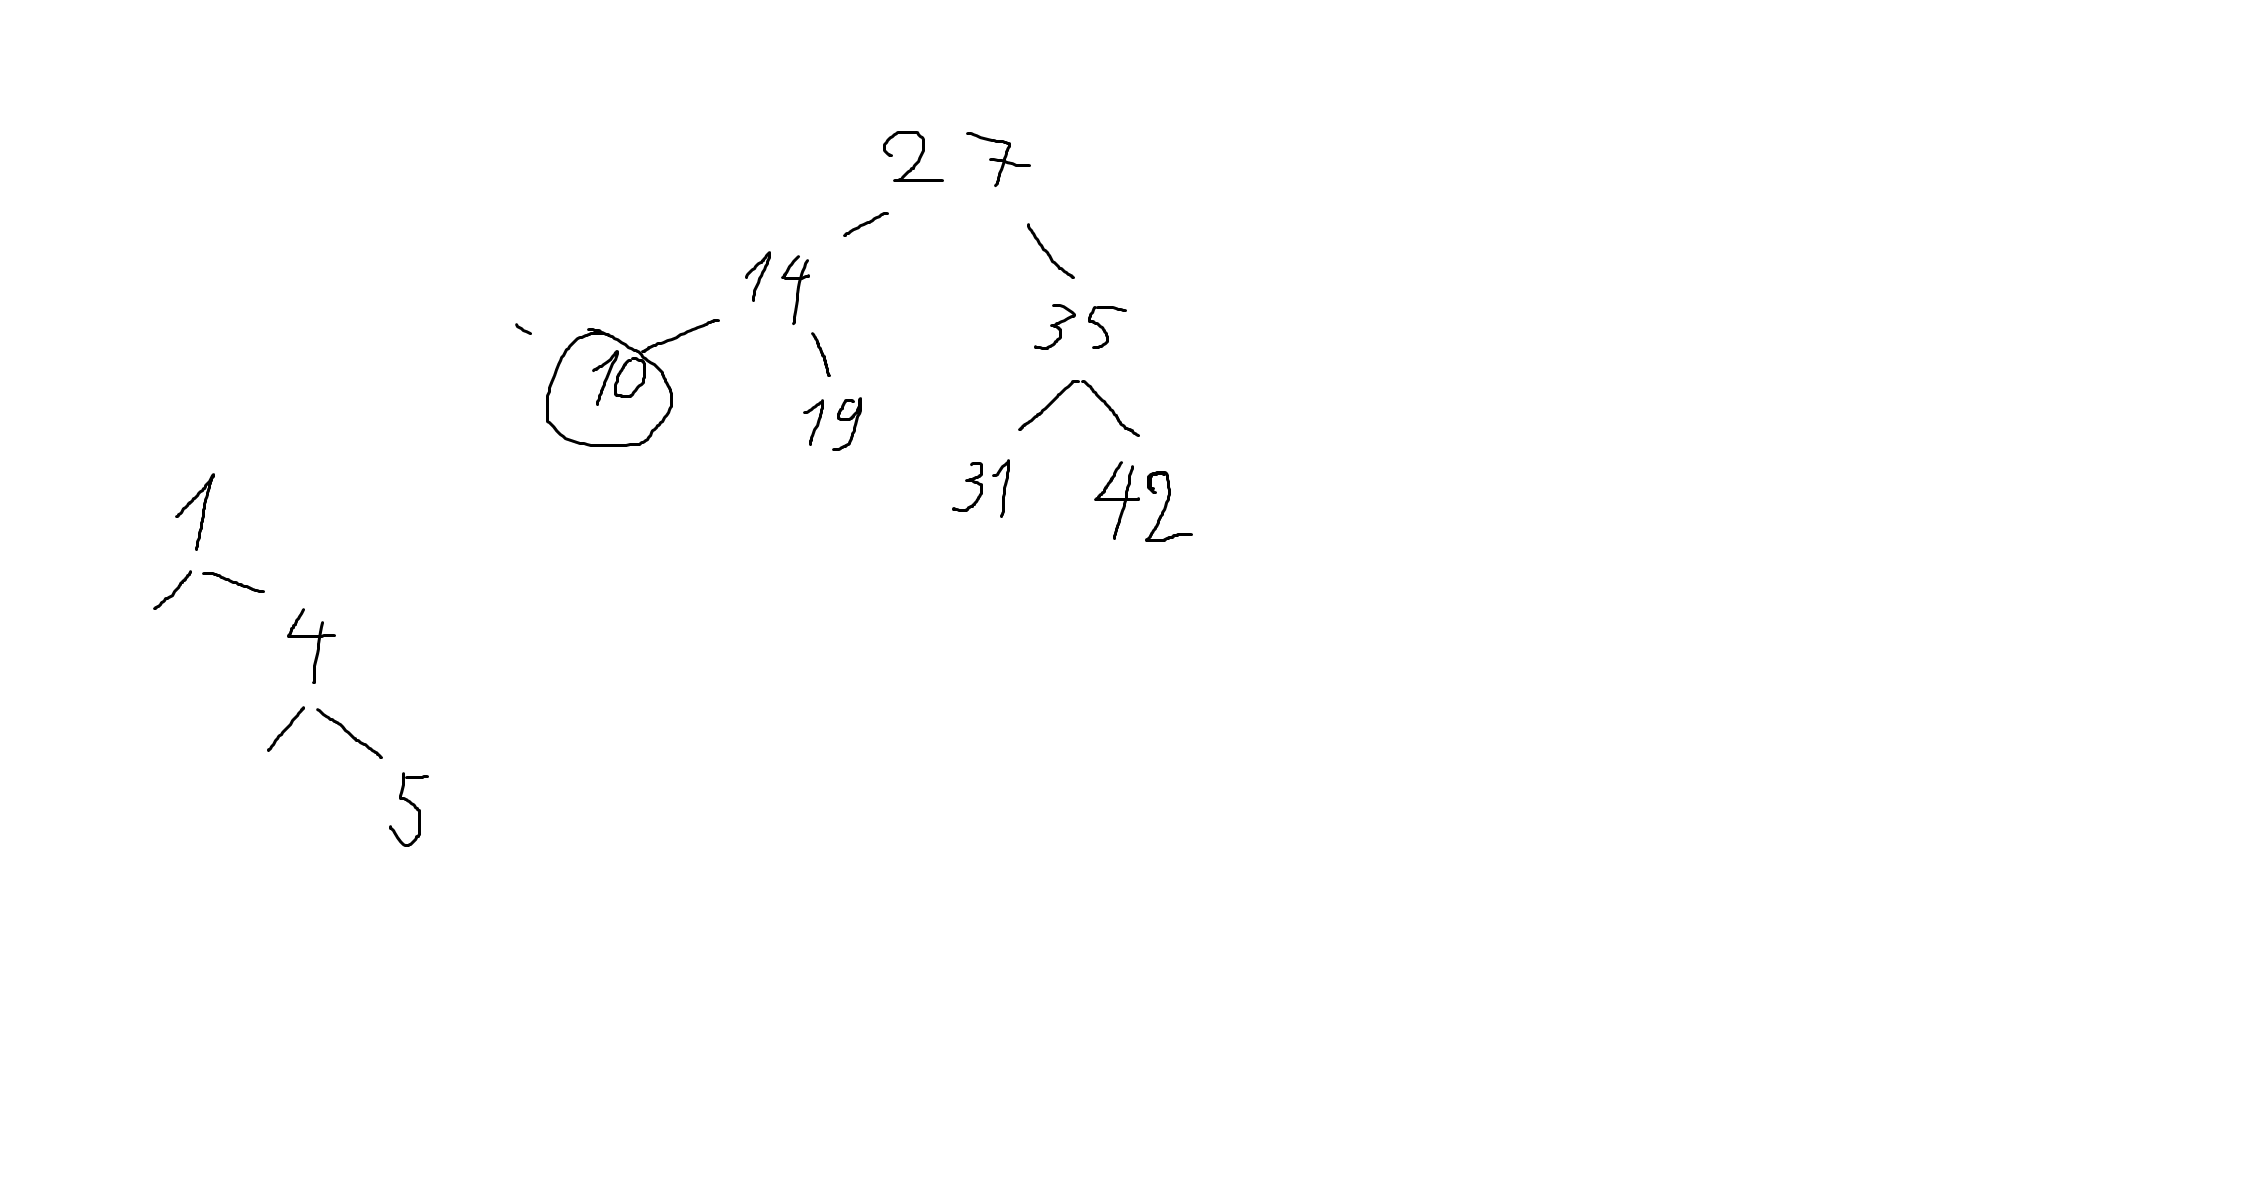 27
14
35
10
19
31 42
1
4
5